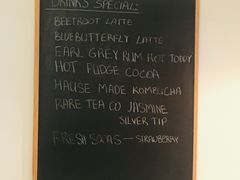 DRINKS SPECIAL:
BEETROOT LATTE
BLUEBUTTERFLY LATTE
EARL GREY RUM HOT TODDY
HOT FUDGE COCOA
HAUSE MADE KOMBUCHA
RARE TEA CO JASMINE
SILVER TIP
FRESH SODAS — STRAWBERRY